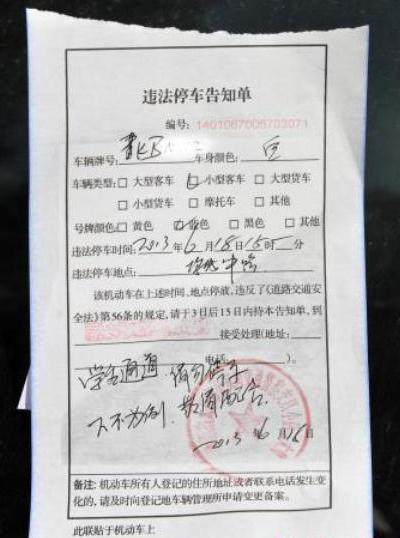 违法停车告知单
编号: 1401067005703071
车辆牌号: 车身颜色: 白
车辆类型: □大型客车 □小型客车 □大型货车
□小型货车 □摩托车 □其他
号牌颜色 □黄色 □蓝色 □黑色 □其他
违法停车时间: 2013年6月18日15时 分
违法停车地点:
该机动车在上述时间、地点停放, 违反了《道路交通安
全法》第56条的规定, 请于3日后15日内持本告知单, 到
接受处理(地址:
电话: )。
学生通道 请勿停车
下不为例. 敬请配合.
2013年6月18日
备注: 机动车所有人登记的住所地址或者联系电话发生变
化的, 请及时向登记地车辆管理所申请变更备案。
此联贴于机动车上